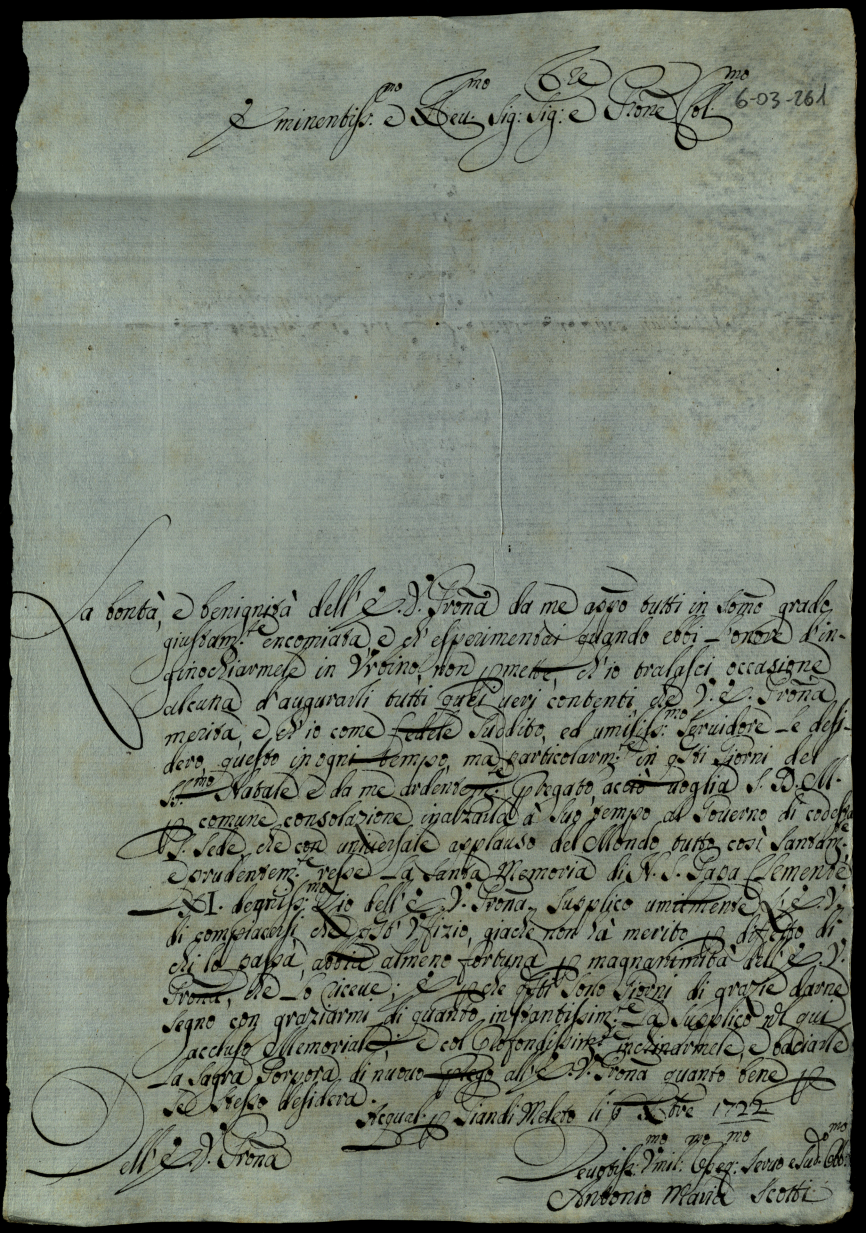 6-03-261
Eminentiss.mo e Reu.mo Sig:re Sig:re e Prone Col.mo
La bontà, e benignità dell'E. V. Prona da me appo tutti in somo grado
giustam.te encomiata, e ch'esperimentai quando ebbi l'onore d'in-
ginochiarmele in Vrbino, non pmette, ch'io tralasci occasione
alcuna d'augurarli tutti quei ueri contenti, che V. E. Prona
merita, e ch'io come fedele suddito, ed umiliss:mo seruidore le desi-
dero, questo in ogni tempo, ma particolarm.te in qsti Giorni del
SS.mo Natale è da me ardentem.te pregato, acciò uoglia S. D. M.
p comune consolazione inalzarla à suo tempo al Gouerno di codesta
S. Sede, che con uniuersale applauso del Mondo tutto così santam.te
e prudentem.te resse la Santa Memoria di N. S. Papa Clemente
XI. degniss:mo Zio dell'E. V. Prona. Supplico umilmente L'E. V.
di compiacersi che qsto Vfizio, giache non hà merito p difetto di
chi lo passa, abbia almeno fortuna p magnanimità dell'E. V.
Prona, che lo riceue; e pche qsti sono Giorni di grazie darne
segno con graziarmi di quanto instantissim.te La supplico nel qui
accluso Memoriale; e col Profondissim.te inchinarmele, e baciarle
la Sagra Porpora di nuouo prego all'E. V. Prona quanto bene p
se stesso desidera.
Acqual. p Piandi Meleto li 6 Xbre 1722
Dell'E. V. Prona
Deuotiss:mo Vmil:mo Osseq:mo Seruo e Sud.o Obb.mo
Antonio Maria Scotti